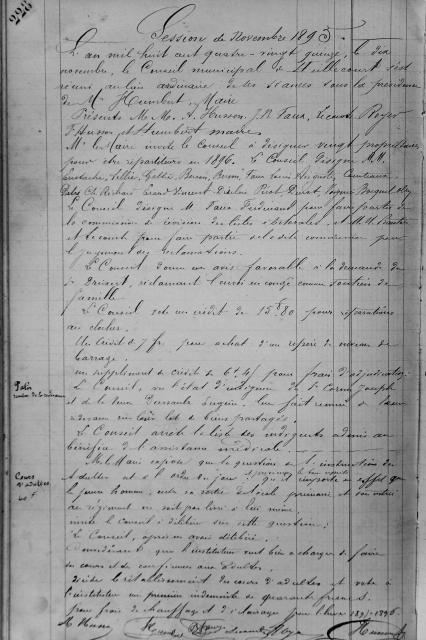 228
Session de Novembre 1895
L'an mil huit cent quatre-vingt quinze, le dix
novembre, le Conseil municipal de s'est
réuni au lieu ordinaire de ses séances sous la présidence
de Mr Humbert, Maire
Présents M. Mrs A. Husson, J.N. Faux, Lecomte, Royer
F. Husson et Humbert maire
Mr le Maire invite le Conseil à désigner vingt propriétaires
pour être répartiteurs en 1896. Le Conseil désigne M.M.
Ch. Richard Vincent
Le Conseil désigne M. Faux Ferdinand pour faire partie de
la commission de révision des listes électorales, et M.M.
et Lecomte pour faire partie de ladite commission pour
le jugement des réclamations.
Le Conseil donne un avis favorable à la demande de
réclamant l'envoi en congé comme soutien de
famille
Le Conseil vote un crédit de 15f80 pour réparations
au clocher.
Un crédit de 7 fr. pour achat d'un
barrage.
un supplément de crédit de pour frais d'adjudication
Le Conseil, vu l'état d'indigence de Sr Joseph
et de la leur fait remise de la taxe
leur lot de biens partagés.
Le Conseil arrête la liste des indigents admis au
bénéfice de l'assistance médicale
M. le Maire expose que la question de l'instruction des
Adultes est à l'ordre du jour; qu'il importe en effet que
le jeune homme, entre sa sortie de l'école primaire et son entrée
au régiment ne soit pas livré à lui même
invite le Conseil à délibérer sur cette question;
Le Conseil, après en avoir délibéré.
Considérant que l'instituteur veut bien se charger de faire
des cours et des conférences aux adultes.
décide l'établissement du cours d'adultes et vote à
l'instituteur une première indemnité de quarante francs.
pour frais de chauffage et d'éclairage pour l'hiver 1895-1896
Cours
d'adultes
40 f